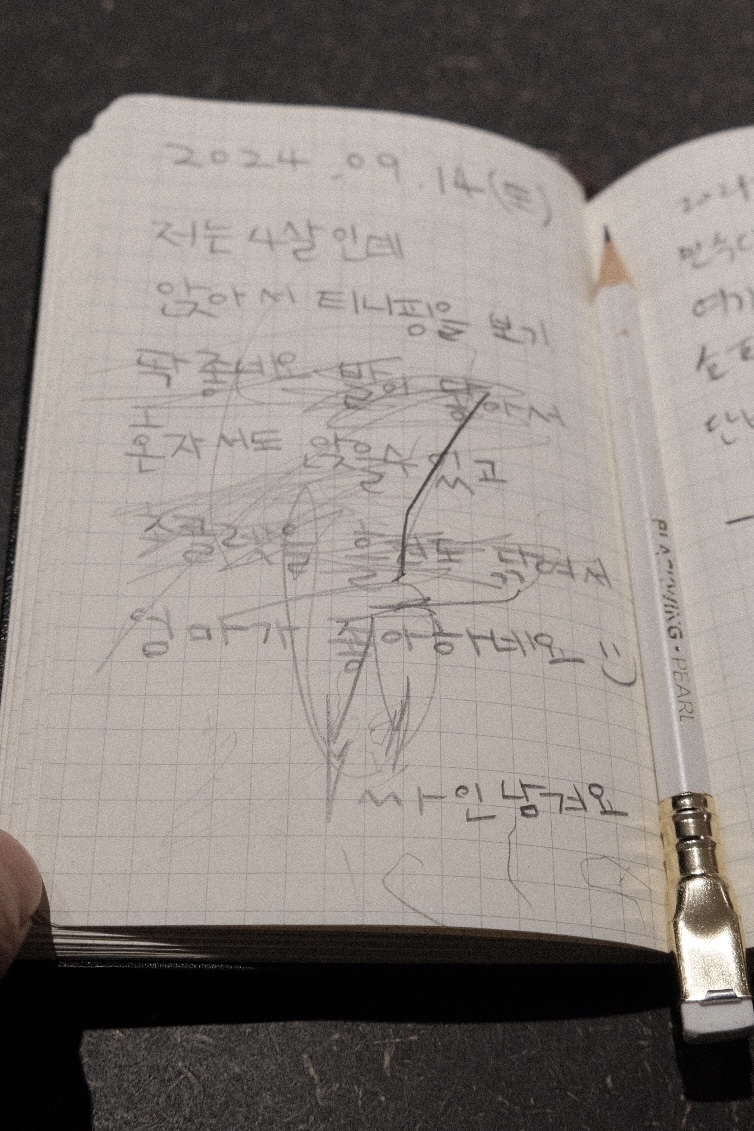 2024.09.14(토)
저는 4살인데
앉아서 티니핑을 보기
딱 좋네요 발이 닿아서
혼자서도 앉을수 있고
초콜렛을 흘려도 닦여서
엄마가 좋아하네요 :)
싸인남겨요
202
여기
PEARL